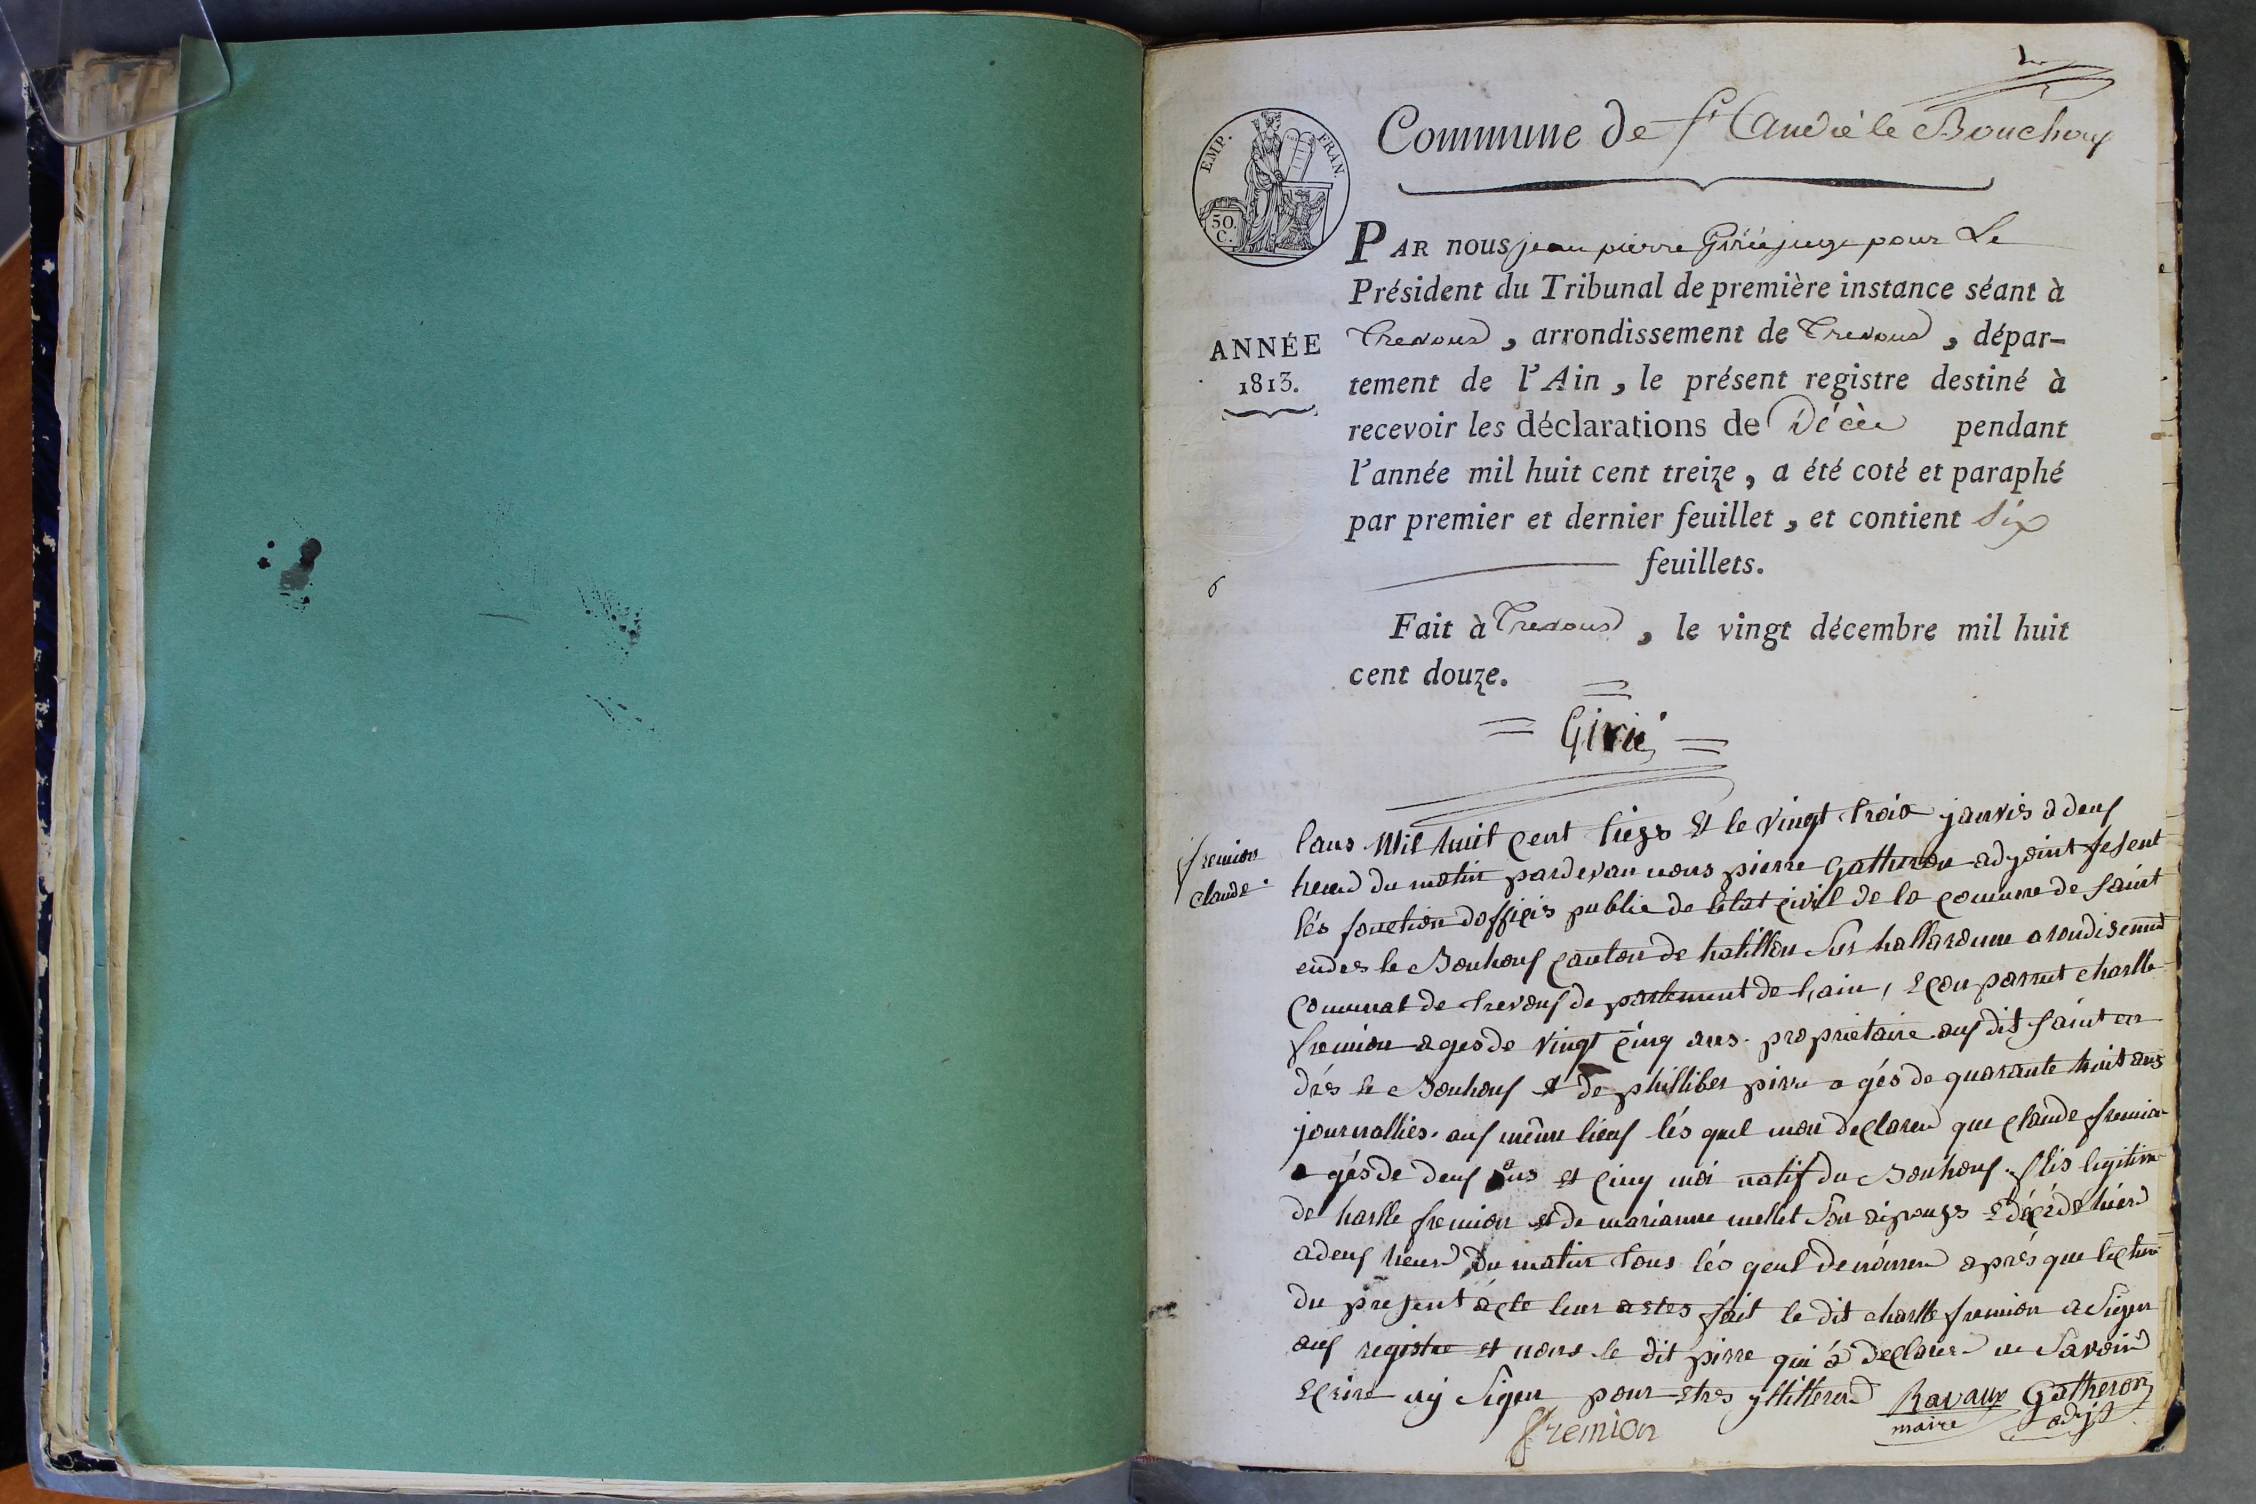 EMP. FRAN.
50.
C.
Commune de St André le Bouchoux
PAR nous jean pierre Girié juge pour Le
Président du Tribunal de première instance séant à
ANNÉE
1813.
Trevoux, arrondissement de Trevoux, dépar-
tement de l'Ain, le présent registre destiné à
recevoir les déclarations de Décès pendant
l'année mil huit cent treize, a été coté et paraphé
par premier et dernier feuillet, et contient Six
feuillets.
6
Fait à Trevoux, le vingt décembre mil huit
cent douze.
Girié
fremion
claude
lans Mil huit cent treze et le vingt trois janvié a deux
heurd du matin pardevan nous pierre Gatheron adjoint fesent
lés fonction doffiçié publie de létat çivil de la commune de saint
endes le Bouhoux canton de hatillon sur hallaronne arondisement
communat de trevoux de partement de hain, e con parrut charlle
fremion agés de vingt çinq ans proprietaire aux dit saint en
drés le Bouhoux et de philliber pirre agés de quarante huit ans
journallies aux même lieux lés quel mon declared que claude fremion
agés de deux ans et cinq moi natif du Bouhoux fils ligitime
de harlle fremion et de marianne mellet son aipouze e décédé hierd
a deux heurd du matin tous lés quel denomen aprés que lecture
du present acte leur astes fait le dit charlle fremion a Signer
aux registre et nous le dit pirre qui á declarer ne savoird
ecrire ny Signer pour Ravaux Gatheron
maire adjt
fremion